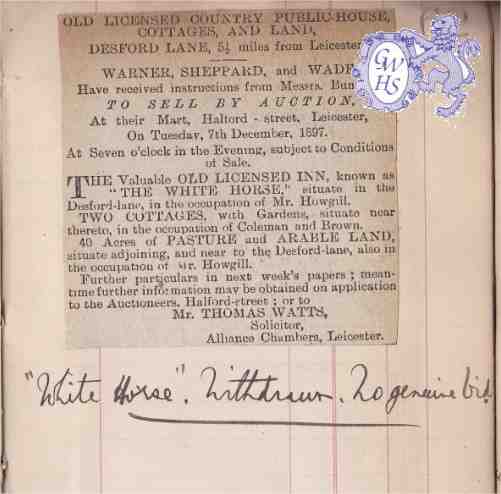 OLD LICENSED COUNTRY PUBLIC-HOUSE,
COTTAGES, AND LAND,
DESFORD LANE, 5½ miles from Leicester
WARNER, SHEPPARD, and WADE
Have received instructions from Messrs. Bun
TO SELL BY AUCTION,
At their Mart, Halford-street, Leicester,
On Tuesday, 7th December, 1897.
At Seven o'clock in the Evening, subject to Conditions
of Sale.
THE Valuable OLD LICENSED INN, known as
"THE WHITE HORSE," situate in the
Desford-lane, in the occupation of Mr. Howgill.
TWO COTTAGES, with Gardens, situate near
thereto, in the occupation of Coleman and Brown.
40 Acres of PASTURE and ARABLE LAND,
situate adjoining, and near to the Desford-lane, also in
the occupation of Mr. Howgill.
Further particulars in next week's papers; mean-
time further information may be obtained on application
to the Auctioneers, Halford-street; or to
Mr. THOMAS WATTS,
Solicitor,
Alliance Chambers, Leicester.
"White Horse". Withdrawn. No genuine bid.
GW
HS